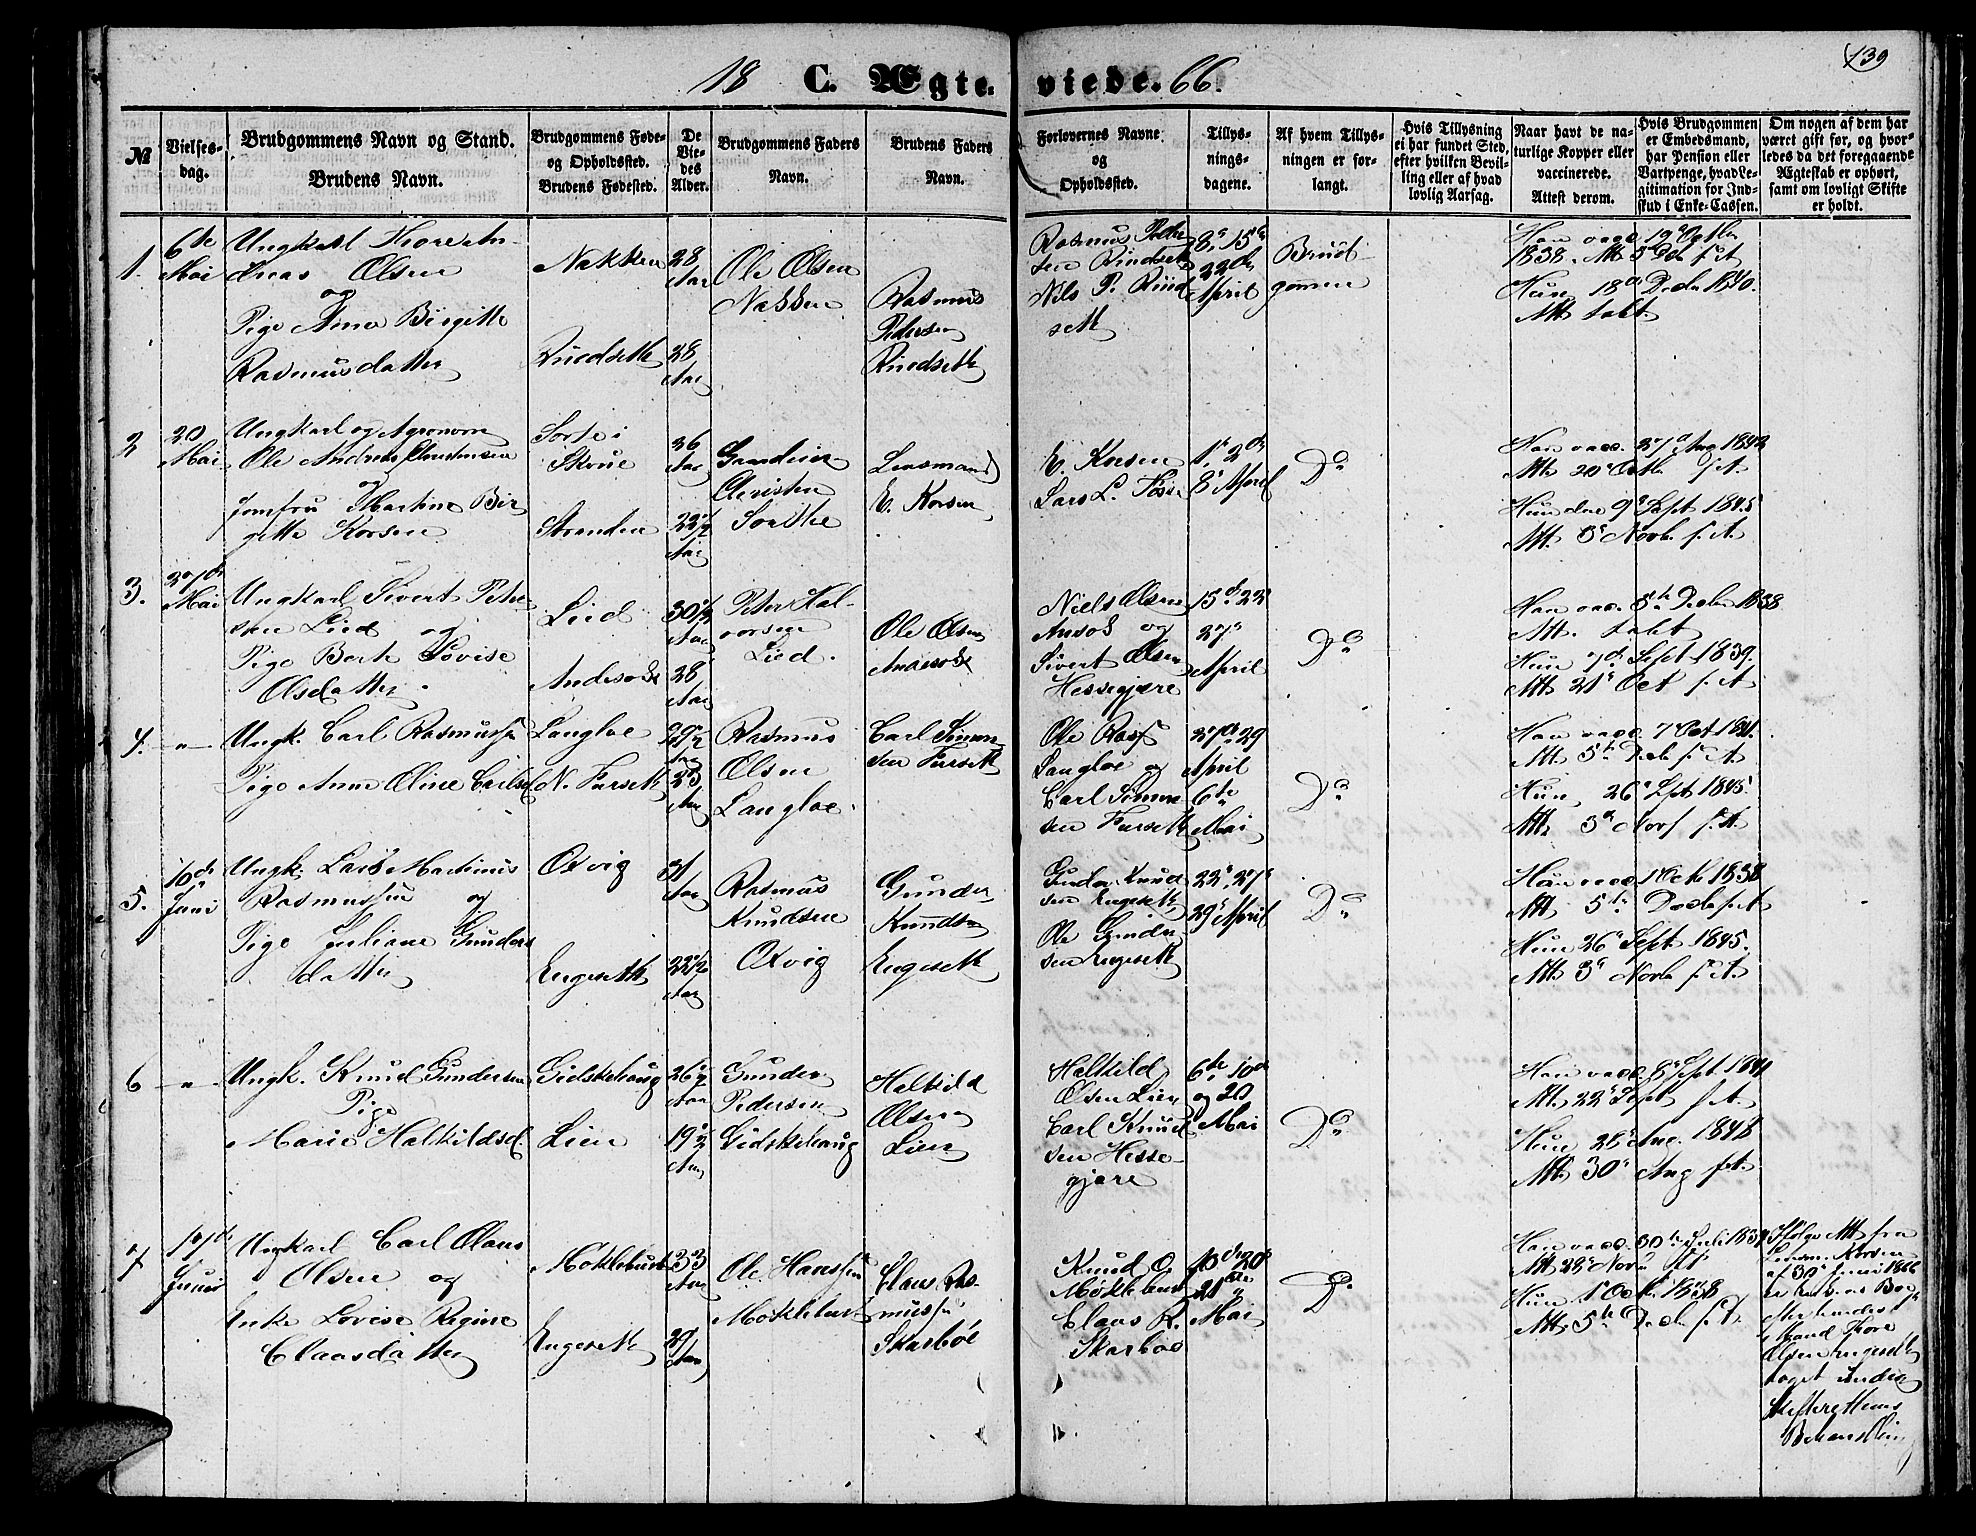 139
18 C. Ægteviede. 66.
№
Vielses-
dag.
Brudgommens Navn og Stand.
Brudens Navn.
Brudgommens Føde-
og Opholdssted.
Brudens Fødested.
De
Vie-
des
Alder.
Brudgommens Faders
Navn.
Brudens Faders
Navn.
Forlovernes Navne
og
Opholdssted.
Tillys-
nings-
dagene.
Af hvem Tillys-
ningen er for-
langt.
Hvis Tillysning
ei har fundet Sted,
efter hvilken Bevil-
ling eller af hvad
lovlig Aarsag.
Naar havt de na-
turlige Kopper eller
vaccinerede.
Attest derom.
Hvis Brudgommen
er Embedsmand,
har Pension eller
Vartpenge, hvad Le-
gitimation for Ind-
skud i Enke-Cassen.
Om nogen af dem har
været gift før, og hvor-
ledes da det foregaaende
Ægteskab er ophørt,
samt om lovligt Skifte
er holdt.
1.
6te
Mai
Ungkarl Thore An-
dreas Olsen
og
Pige Anna Birgitte
Rasmusdatter
Nakken
28
Aar
28
Aar
Ole Olsen
Nakken
Rasmus
Pedersen
Rindseth
Nils P. Rind
seth
8de 15de
22de
April
Brud-
gommen
Han vacc. 19de Octbr
1838. Att. 5 Dcb s. A.
Hun 18de Decbr 1840.
Att. tabt.
2
20
Mai
Ungkarl og Agronom
Ole Andreas Christensen
og
Jomfru Martine Bir
gitte Korsen
Stranden
36
Aar
22 1/2
Aar
Christen
Lensmand
E. Korsen
E. Korsen
Lars L.
1, 2den
8 April
Do
Att. 20 Octb. s. A.
Hun den 9 Sept 1845
Att. 3 Novb. s. A.
3.
27de
Mai
Ungkarl Sivert Peter
sen Lied og
Pige Berte Lovise
Olsdatter.
Lied
30 1/2
Aar
28
Aar
Peter Hal-
vorsen
Lied.
Ole Olsen
Niels Olsen
og
Sivert Olsen
Hessegjære
15de 22
27
April
Do
Han vacc. 5te Decbr 1838
Att. tabt
Hun 7de Sept 1839.
Att. 21 Oct s. A.
4.
-"-
Ungk. Carl Rasmussen
Pige Anne Oline Carlsd
Langloe
N. Furseth
29 1/2
Aar
23
Aar
Rasmus
Olsen
Langloe.
Carl Simon
sen Furseth
Ole Rass
Langloe og
Carl Simon
sen Furseth
27de 29
April
6te
Mai
Do
Han vacc. 7 Oct 1841.
Att. 5te Dcb s. A.
Hun 26 Sept 1845
Att. 3de Nov s. A.
5.
10de
Juni
Ungk. Lars Martinus
Rasmussen og
Pige Juliane Gunders
datter
Oxvig
Engeseth
31
Aar
22 1/2
Aar
Rasmus
Knudsen
Oxvig
Gunder
Knudsen
Engeseth
Gunder Knud
sen Engeseth,
Ole Gunder
sen Engeseth
22, 27
29 April
Do
Han vacc. 1 Octb 1838
Att. 5te Decb s. A.
Hun 26 Sept 1845.
Att. 3 Novb s. A.
6
-"-
Ungk. Knud Gundersen
Pige
Marie Halkildsd.
Gidskehaug
Lien
26 1/2
Aar
19 1/2
Aar
Gunder
Pedersen
Gidskehaug
Halkild
Olsen
Lien
Halkild
Olsen Lien
Carl Knud
sen Hesse-
gjære
6te 10de
og 20
Mai
Do
Han vacc. 8 Sept 1841
Att. 22 Sept s. A.
Hun 28 Aug. 1848
Att. 30 Aug s. A.
7
17de
Juni
Ungkarl Carl Olaus
Olsen og
Enke Lovise Regine
Claasdatter
Moklebust
Engeseth
33
Aar
27
Aar
Ole Hanssen
Moklebust
Claus Ras-
mussen
Skarbøe
Knud O
Møklebust
Claus R.
Skarboe
10de 20
21de
Mai
Do
Att. 22 Nov s. A.
Hun 1 Oct. 1838
Att. 5te Decb s. A.
Ifølge Att. fra
Lensm. Korsen
af 30 Juni 1866
er hendes Boe
efter hendes
Mand Thore
Olsen Engeseth
taget under
Skifterettens
Behandling